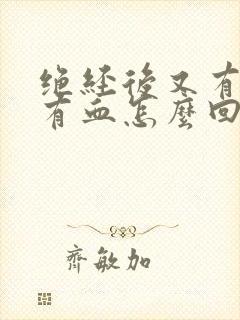 绝经後又有
有血怎麼回
齊敏加